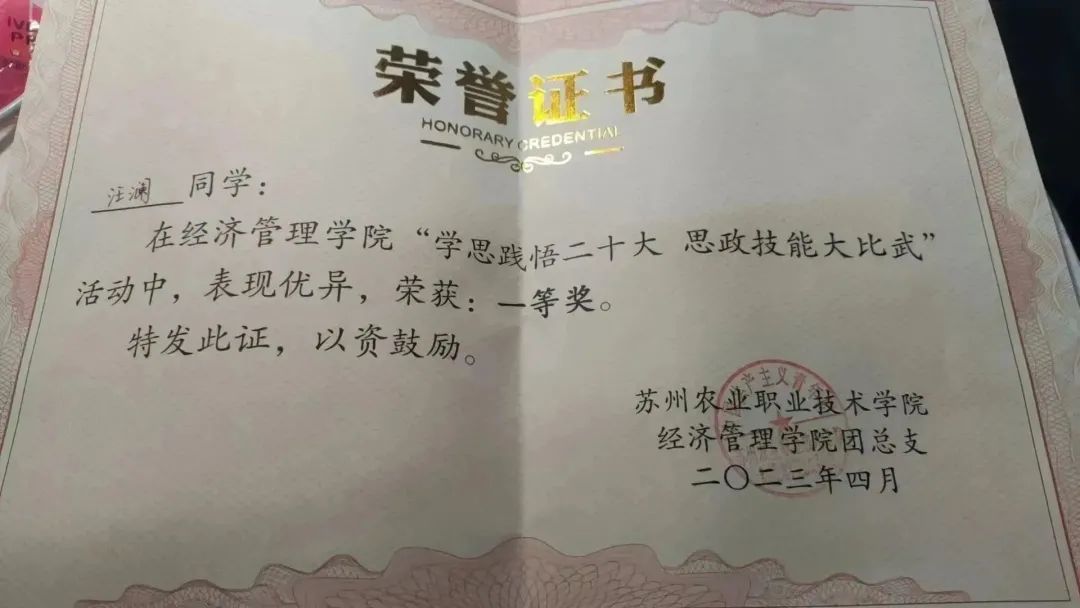 荣誉证书
HONORARY CREDENTIAL
汪澜 同学：
在经济管理学院“学思践悟二十大 思政技能大比武”
活动中，表现优异，荣获：一等奖。
特发此证，以资鼓励。
苏州农业职业技术学院
经济管理学院团总支
二〇二三年四月